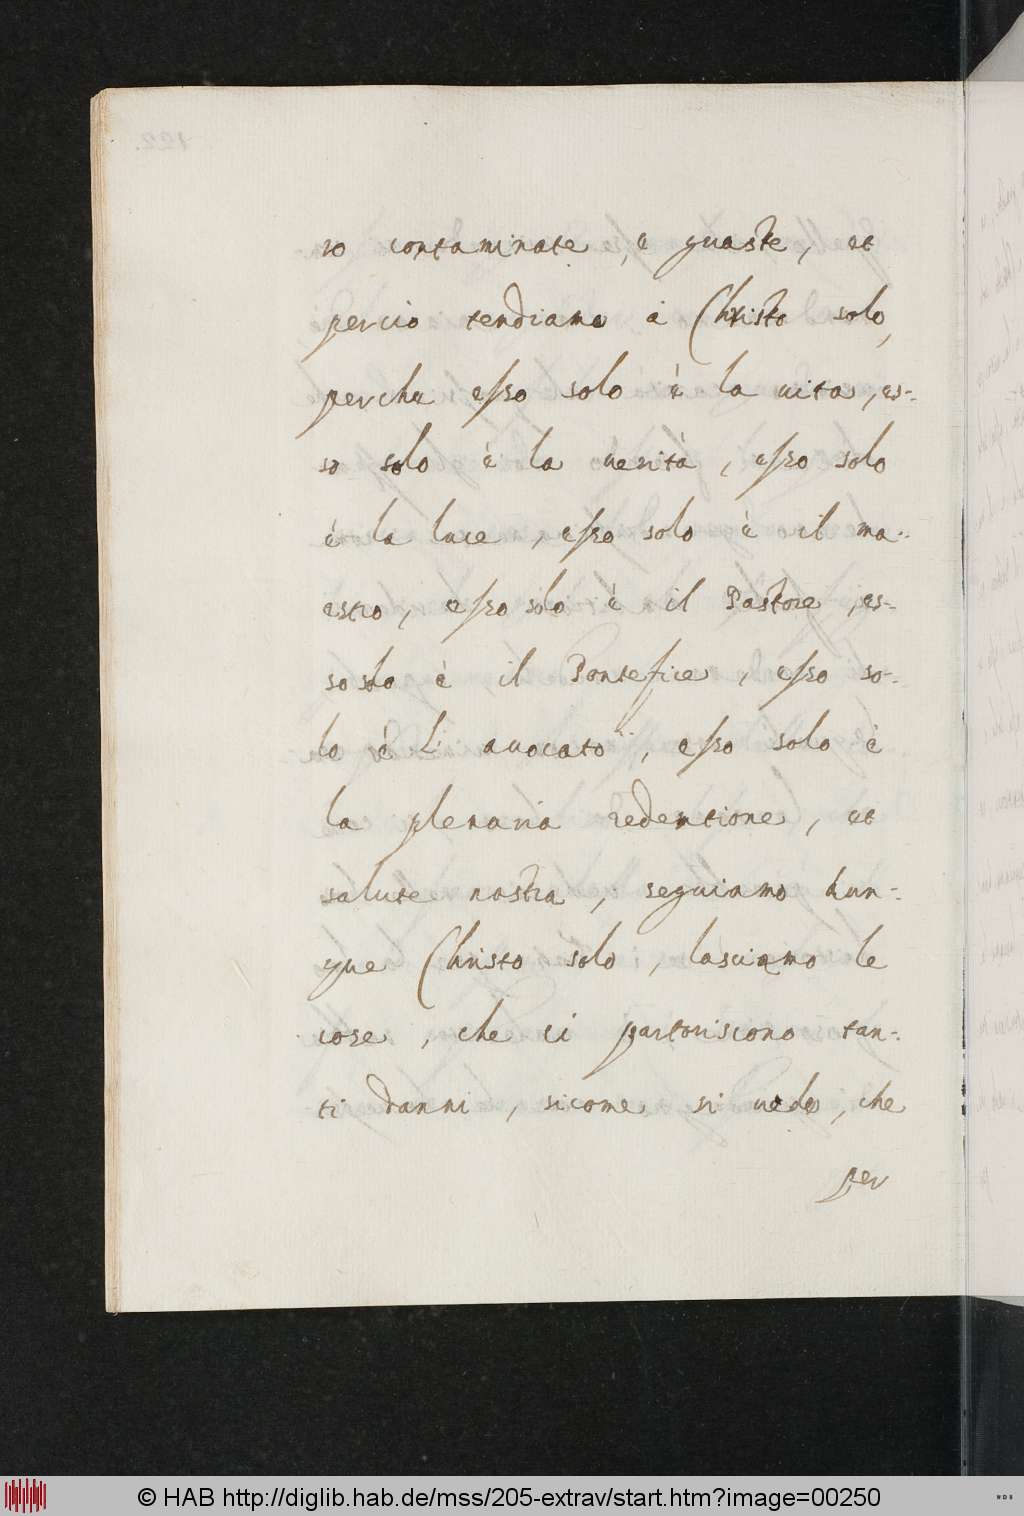 ro contaminate, e guaste, et
perciò tendiamo à Christo solo,
perche esso solo è la uita, es-
so solo è la uerità, esso solo
è la luce, esso solo è il ma-
estro, esso solo è il Pastore, es-
so solo è il Pontefice, esso so-
lo è L'auocato, esso solo è
la plenaria redentione, et
salute nostra, seguiamo dun-
que Christo solo, lasciamo le
cose, che ci partoriscono tan-
ti danni, sicome si uede, che
per
© HAB http://diglib.hab.de/mss/205-extrav/start.htm?image=00250